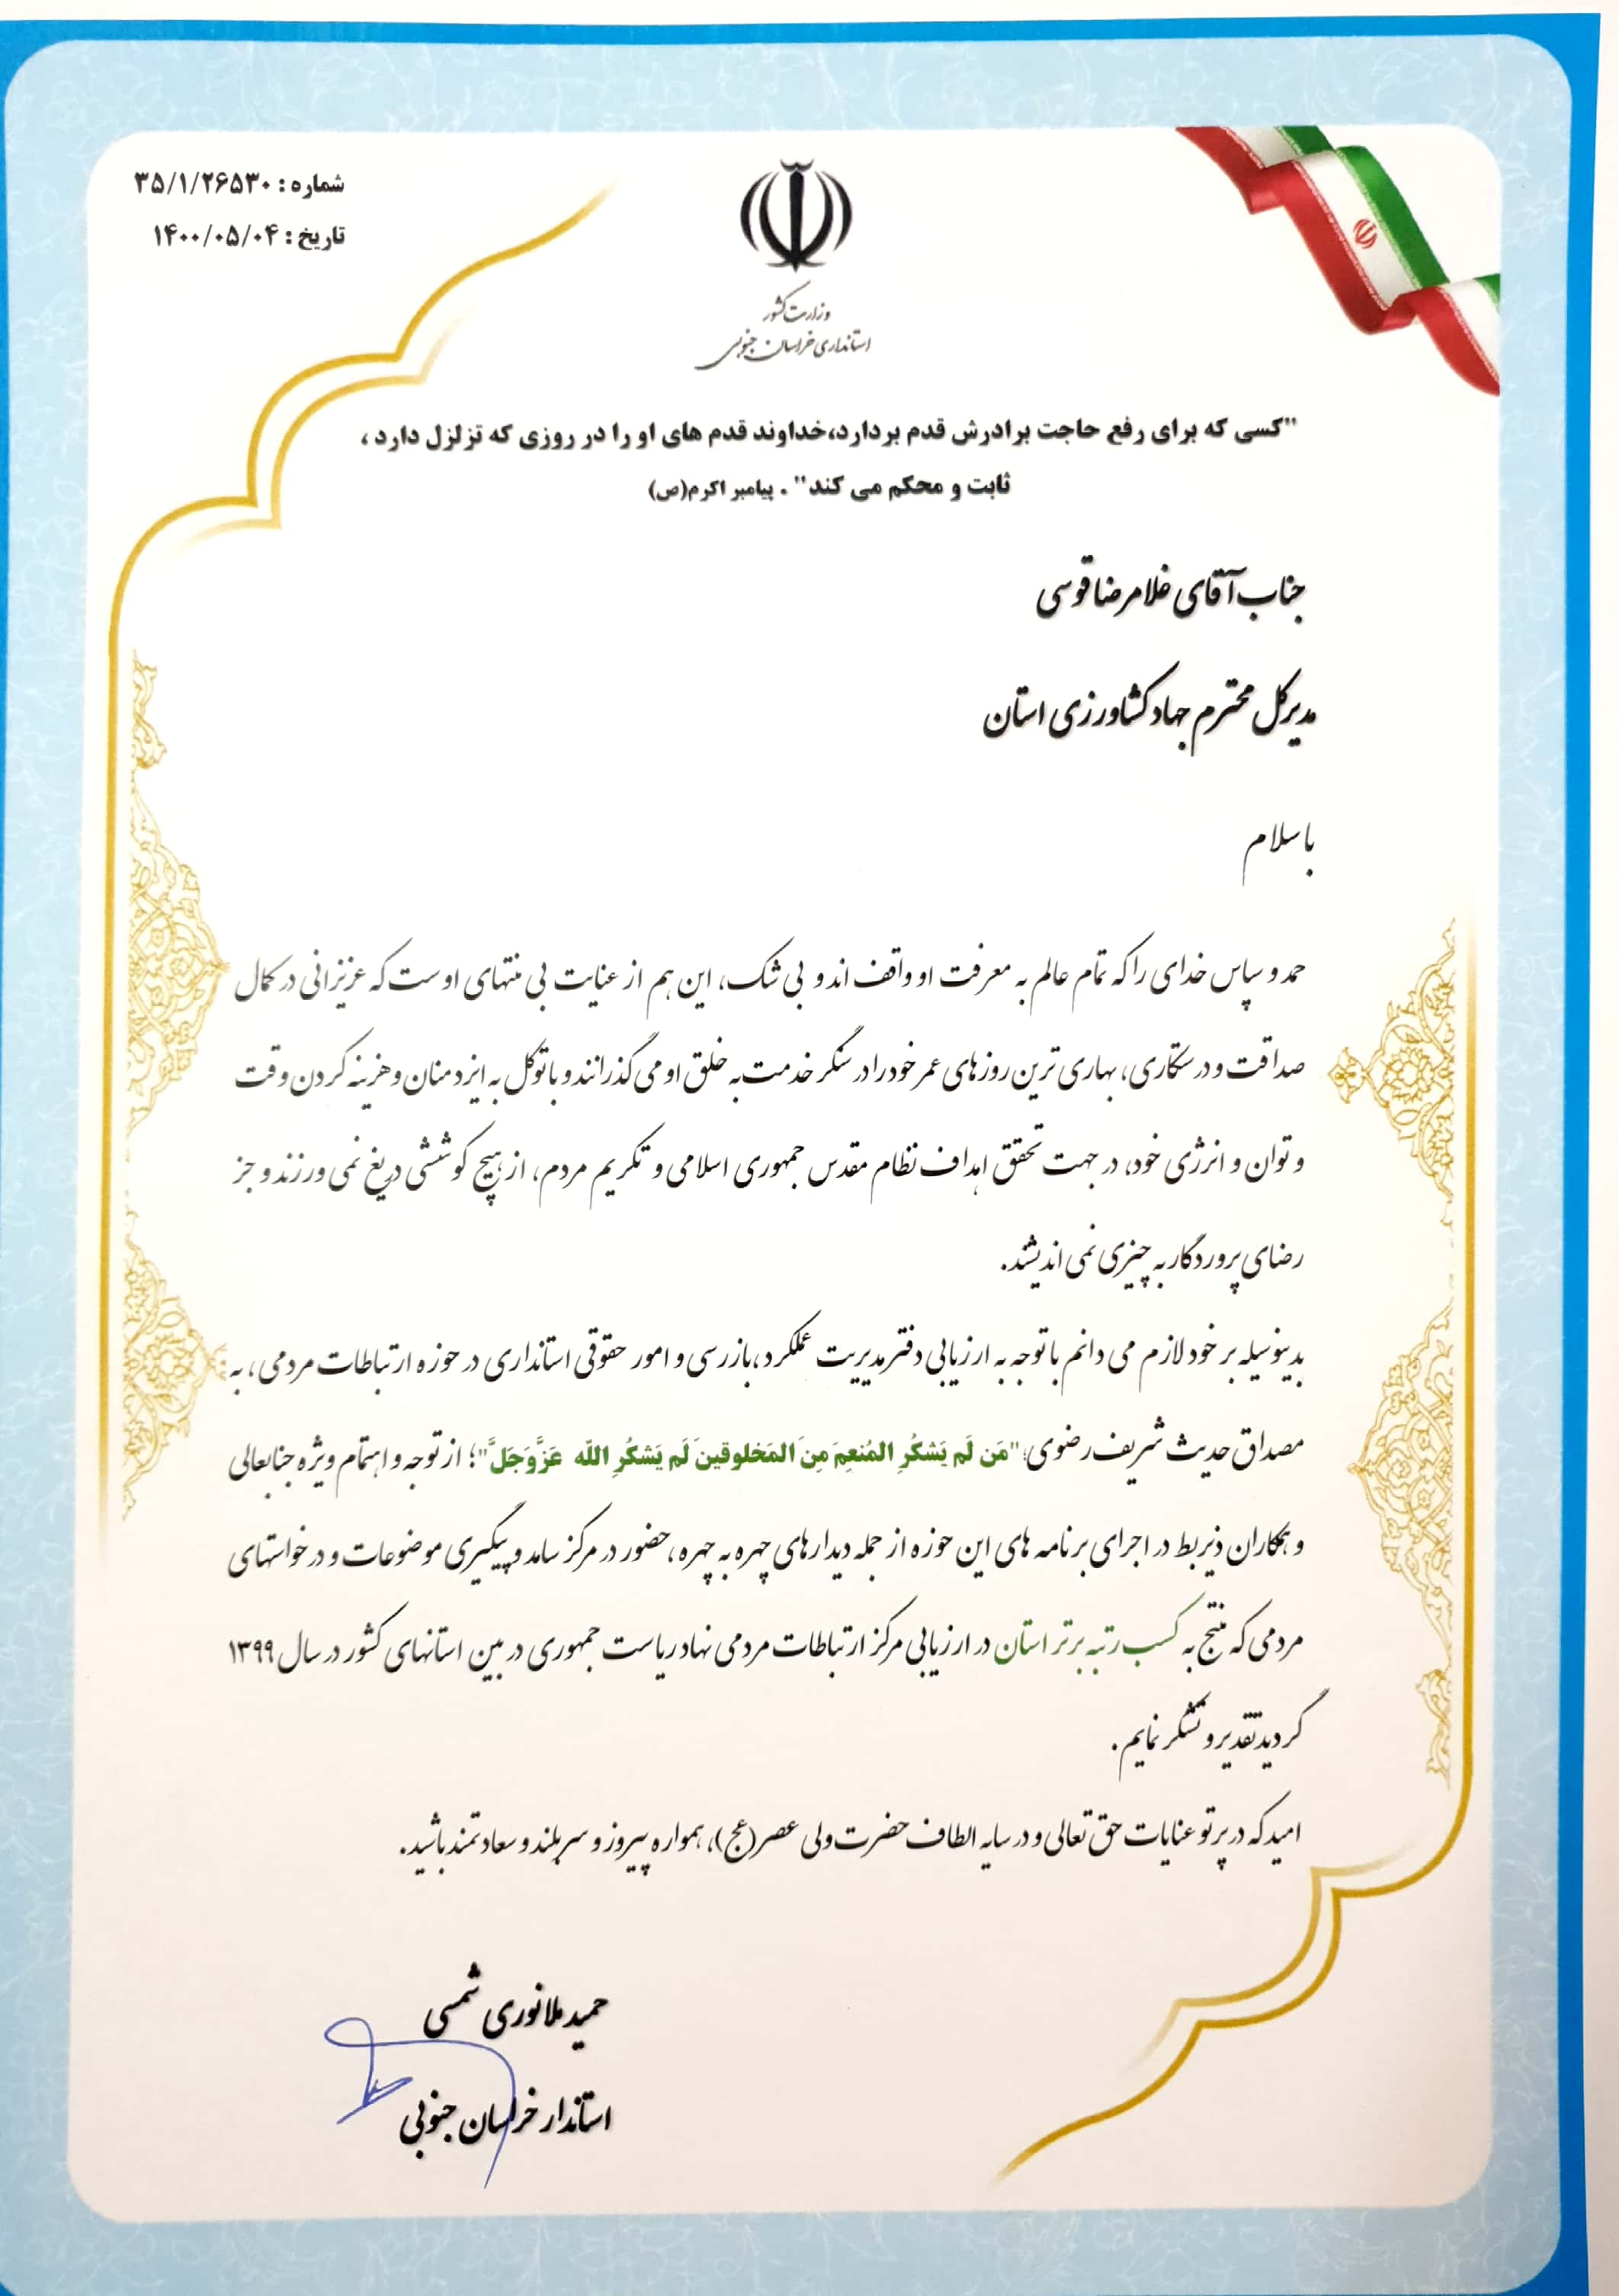 شماره : ۳۵/۱/۲۶۵۳۰
تاریخ : ۱۴۰۰/۰۵/۰۴
وزارت کشور
استانداری خراسان جنوبی
"کسی که برای رفع حاجت برادرش قدم بردارد،خداوند قدم های او را در روزی که تزلزل دارد ،
ثابت و محکم می کند" . پیامبر اکرم(ص)
جناب آقای غلامرضا قوسی
مدیرکل محترم جهاد کشاورزی استان
با سلام
حمد و سپاس خدای را که تمام عالم به معرفت او واقف اند و بی شک، این هم از عنایت بی منتهای اوست که عزیزانی در کمال
صداقت و درستکاری، بهاری ترین روزهای عمر خود را در سنگر خدمت به خلق او می گذرانند و با توکل به ایزد منان و هزینه کردن وقت
و توان و انرژی خود، در جهت تحقق اهداف نظام مقدس جمهوری اسلامی و تکریم مردم، از هیچ کوششی دریغ نمی ورزند و جز
رضای پروردگار به چیزی نمی اندیشند.
بدینوسیله بر خود لازم می دانم با توجه به ارزیابی دفتر مدیریت عملکرد ،بازرسی و امور حقوقی استانداری در حوزه ارتباطات مردمی، به
مصداق حدیث شریف رضوی؛ "مَن لَم یَشکُرِ المُنعِمَ مِنَ المَخلوقینَ لَم یَشکُرِ اللّه عَزَّوَجَلَّ"؛ از توجه و اهتمام ویژه جنابعالی
و همکاران ذیربط در اجرای برنامه های این حوزه از جمله دیدارهای چهره به چهره ،حضور در مرکز سامد و پیگیری موضوعات و درخواستهای
مردمی که منتج به کسب رتبه برتر استان در ارزیابی مرکز ارتباطات مردمی نهاد ریاست جمهوری در بین استانهای کشور در سال ۱۳۹۹
گردید تقدیر و تشکر نمایم .
امید که در پرتو عنایات حق تعالی و در سایه الطاف حضرت ولی عصر(عج)، همواره پیروز و سربلند و سعادتمند باشید.
حمید ملانوری شمسی
استاندار خراسان جنوبی